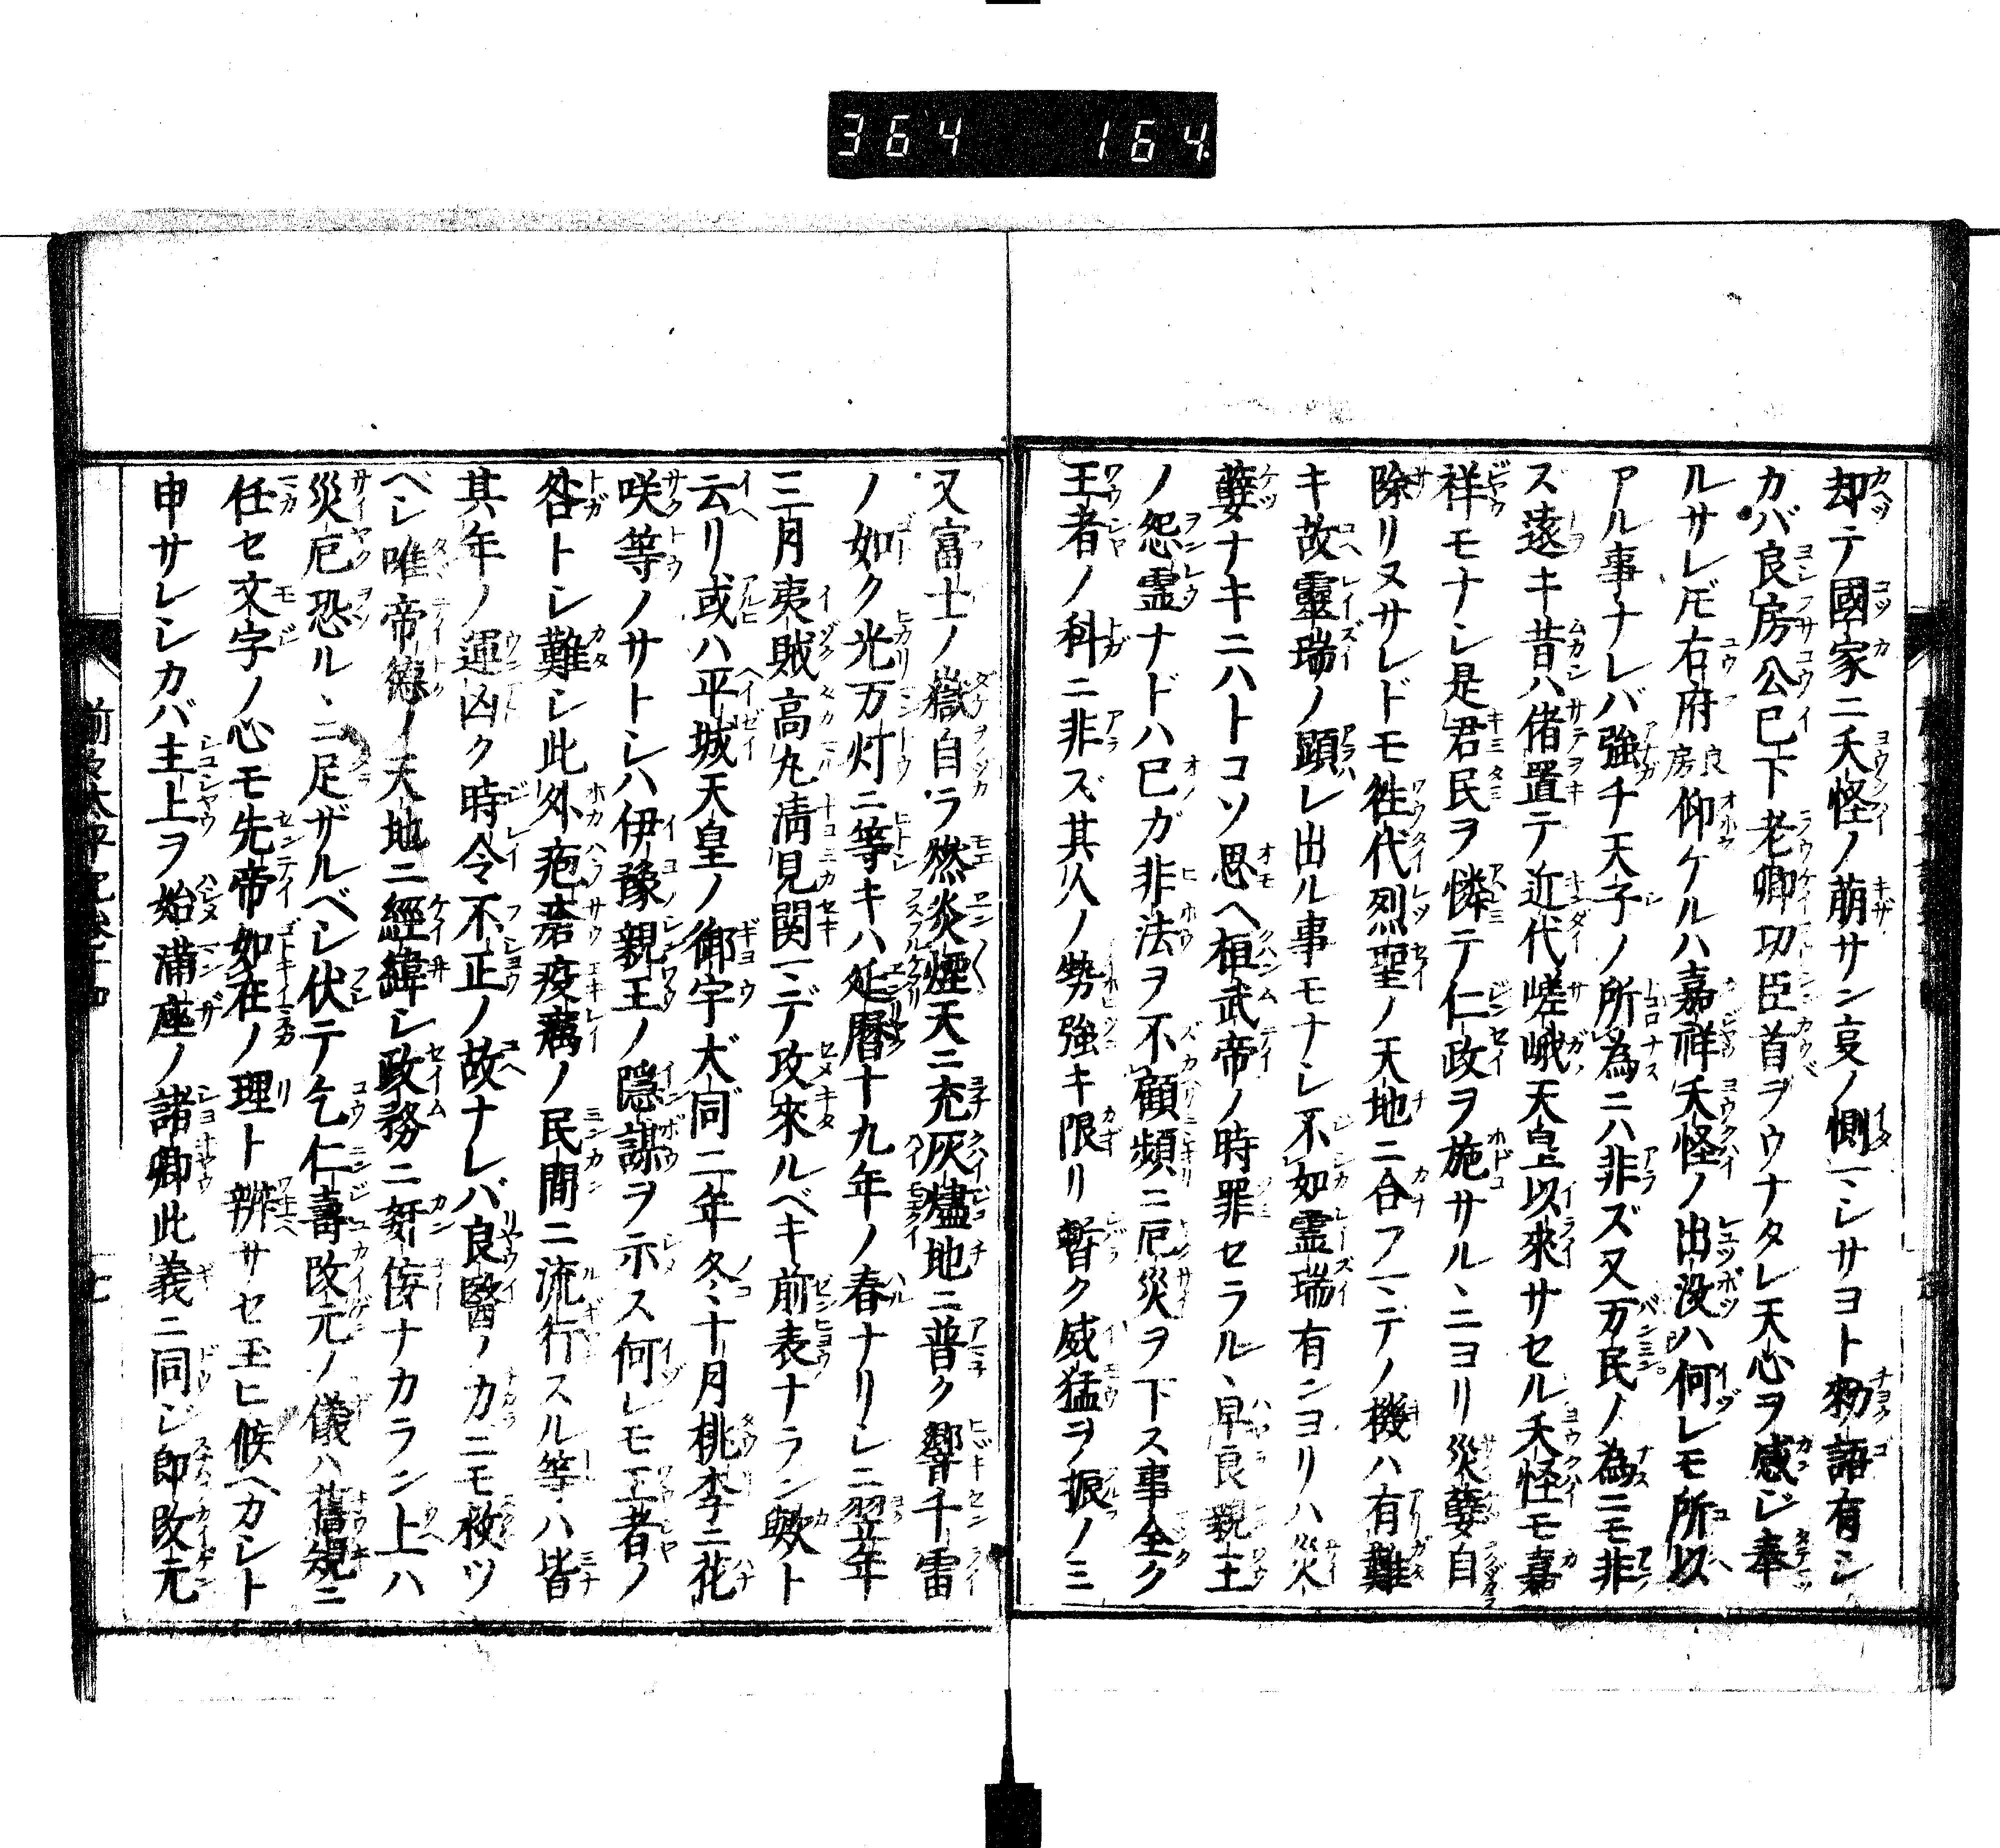 364 164
却テ國家ニ夭怪ノ萠サン㕝ノ惻マシサヨト勅語有シ
カバ良房公已下老卿功臣首ヲウナタレ天心ヲ感ジ奉
ルサレ𪜈右府良房仰ケルハ嘉祥夭怪ノ出没ハ何レモ所以
アル事ナレバ強チ天子ノ所為ニハ非ズ又万民ノ為ニモ非
ス遠キ昔ハ偖置テ近代嵯峨天皇以來サセル夭怪モ嘉
祥モナシ是君民ヲ憐テ仁政ヲ施サルヽニヨリ災孽自
除リヌサレドモ徃代烈聖ノ天地ニ合フマデノ機ハ有難
キ故靈瑞ノ顕レ出ル事モナシ不如霊瑞有ンヨリハ災
孽ナキニハトコソ思ヘ桓武帝ノ時罪セラルヽ早良親王
ノ怨霊ナドハ已ガ非法ヲ不顧頻ニ厄災ヲ下ス事全ク
王者ノ科ニ非ズ其人ノ勢強キ限リ暫ク威猛ヲ振ノミ
又富士ノ嶽自ラ燃炎煙天ニ充灰燼地ニ普ク響千雷
ノ如ク光万灯ニ等キハ延暦十九年ノ春ナリシニ翌年
三月夷賊高丸淸見関マデ攻來ルベキ前表ナラン歟ト
云リ或ハ平城天皇ノ御宇大同二年冬十月桃李ニ花
咲等ノサトシハ伊豫親王ノ隠謀ヲ示ス何レモ王者ノ
咎トシ難シ此外疱瘡疫癘ノ民間ニ流行スル等ハ皆
其年ノ運凶ク時令不正ノ故ナレバ良醫ノカニモ救ツ
ベシ唯帝德ノ天地ニ經緯シ政務ニ奸侫ナカラン上ハ
災厄恐ルヽニ足ザルベシ伏テ乞仁壽改元ノ儀ハ舊規ニ
任セ文字ノ心モ先帝如在ノ理ト辨サセ玉ヒ候ヘカシト
申サレシカバ主上ヲ始滿座ノ諸卿此義ニ同ジ即改元